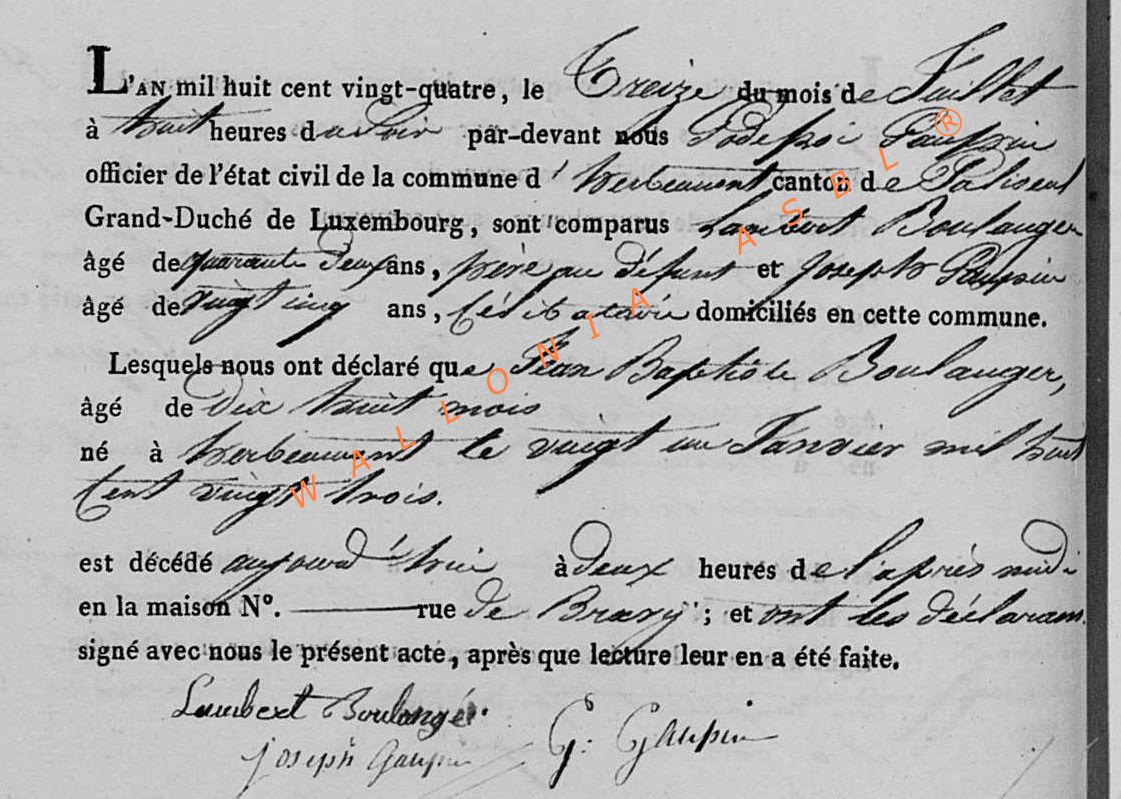 L'AN mil huit cent vingt-quatre, le Treize du mois de Juillet
à huit heures du Soir par-devant nous Godefroi Gaupin
officier de l'état civil de la commune d'herbeumont, canton de Paliseul
Grand-Duché de Luxembourg, sont comparus Lambert Boulanger
âgé de quarante deux ans, père au défunt et Joseph Gaupin
âgé de vingt cinq ans, Célibataire domiciliés en cette commune.
Lesquels nous ont déclaré que Jean Baptiste Boulanger,
âgé de Dix huit mois
né à herbeumont le vingt un Janvier mil huit
Cent vingt trois.
est décédé aujourd'hui à deux heures de l'après midi
en la maison N°. rue de ; et ont les déclarans
signé avec nous le présent acte, après que lecture leur en a été faite.
Lambert Boulanger
G. Gaupin
Joseph Gaupin
WALLONIA ASBL ®